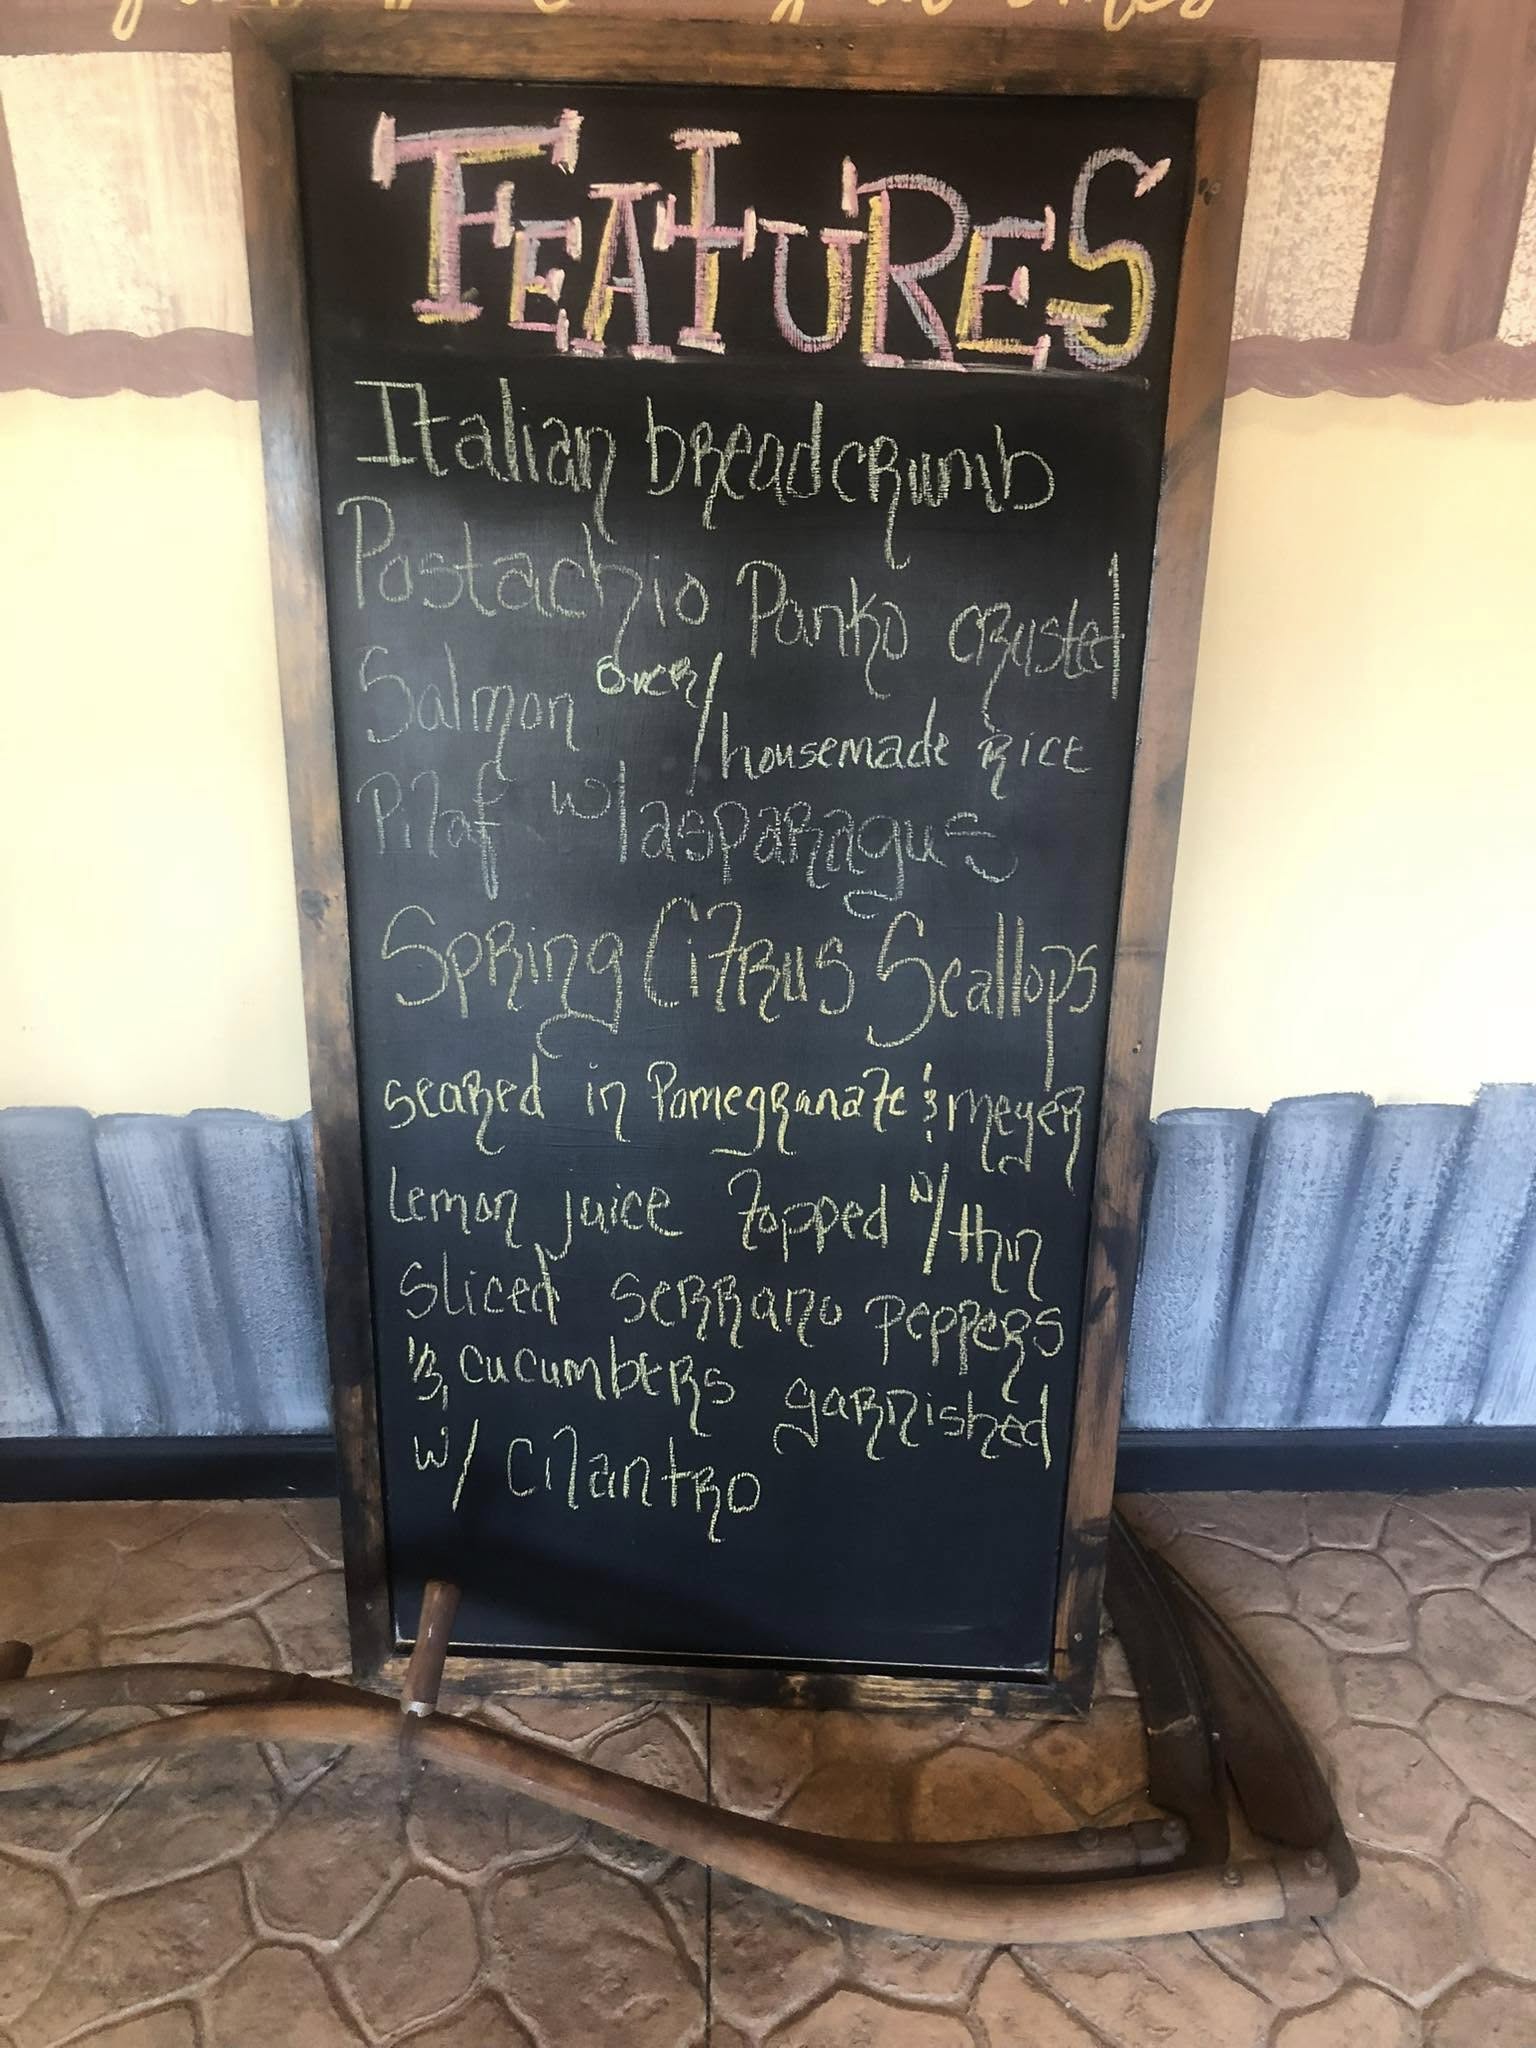 FEATURES
Italian breadcrumb
Postachio Panko crusted
Salmon over/housemade Rice
Pilaf w/asparagus
Spring Citrus Scallops
seared in Pomegranate & meyer
Lemon juice Topped w/thin
sliced serrano peppers
& cucumbers garnished
w/ Cilantro